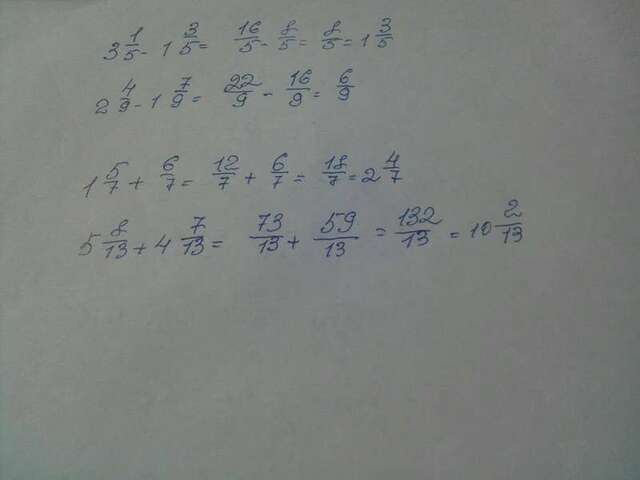 3 1/5 - 1 3/5 = 16/5 - 8/5 = 8/5 = 1 3/5
2 4/9 - 1 7/9 = 22/9 - 16/9 = 6/9
1 5/7 + 6/7 = 12/7 + 6/7 = 18/7 = 2 4/7
5 8/13 + 4 7/13 = 73/13 + 59/13 = 132/13 = 10 2/13